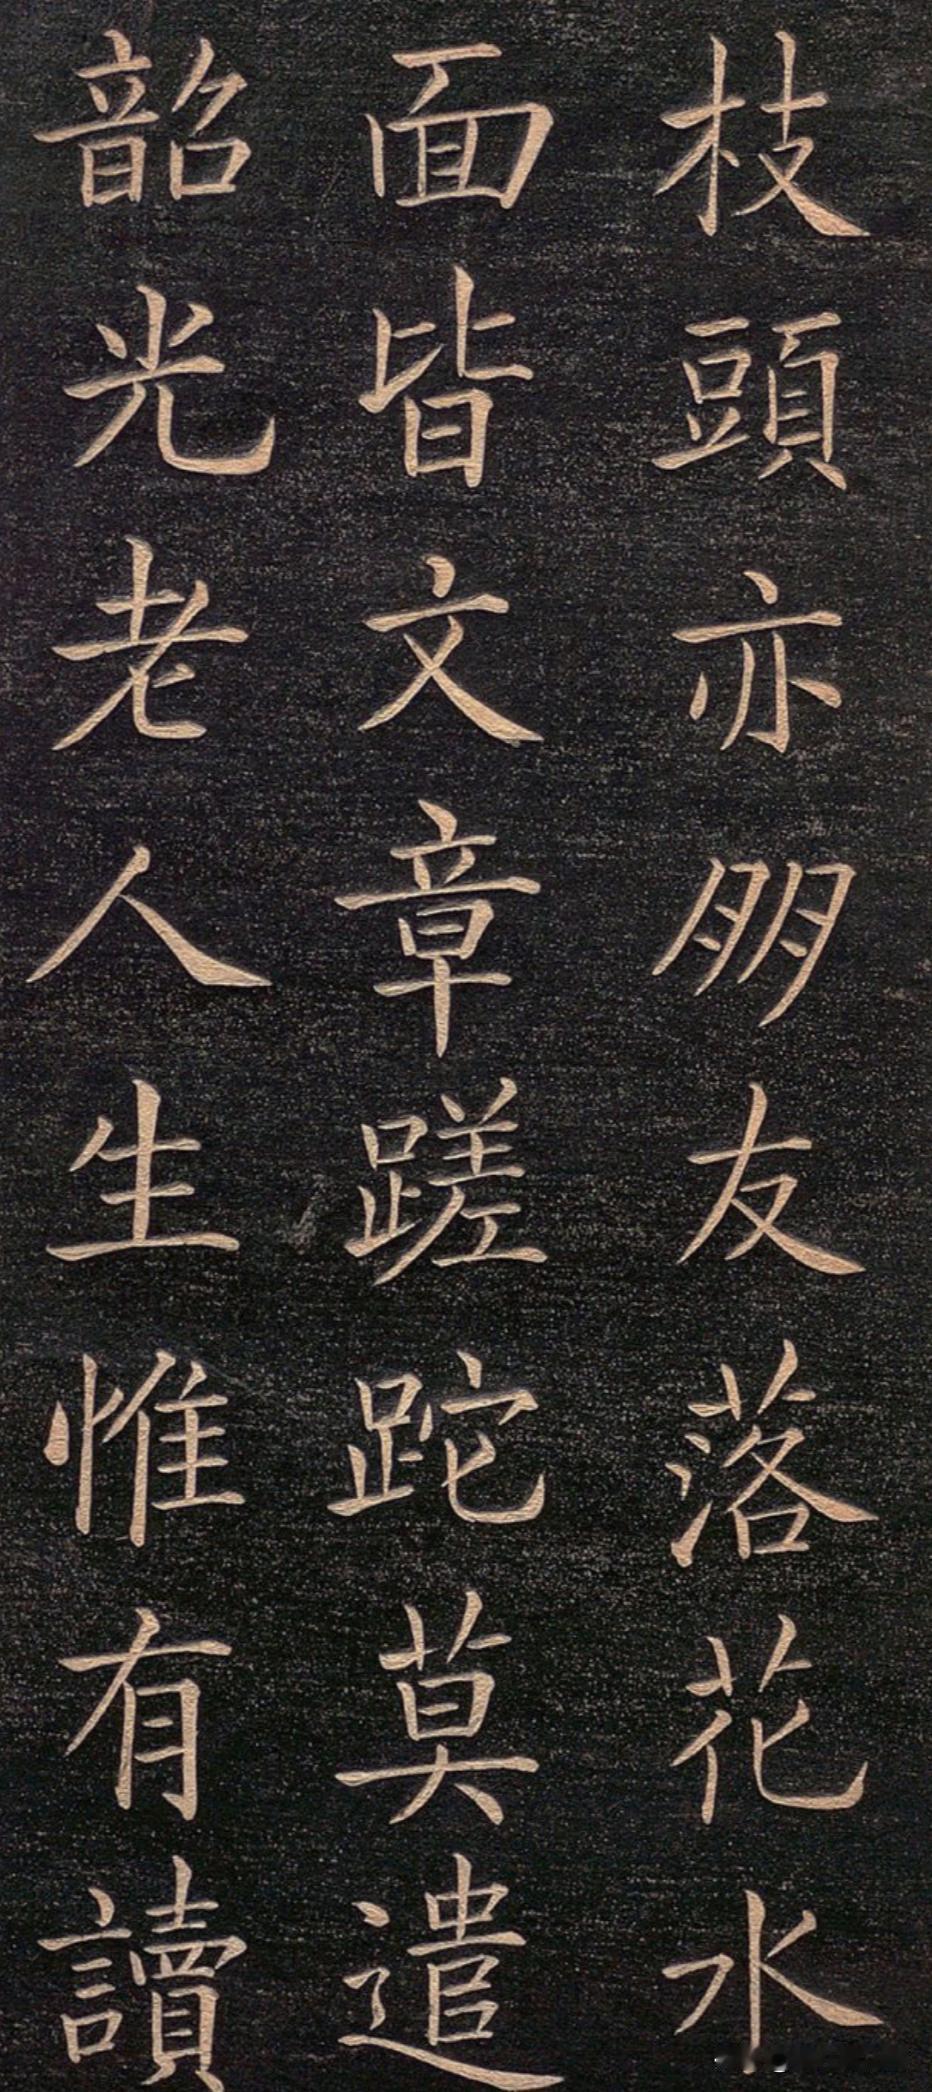 枝頭亦朋友落花水
面皆文章蹉跎莫遣
韶光老人生惟有讀